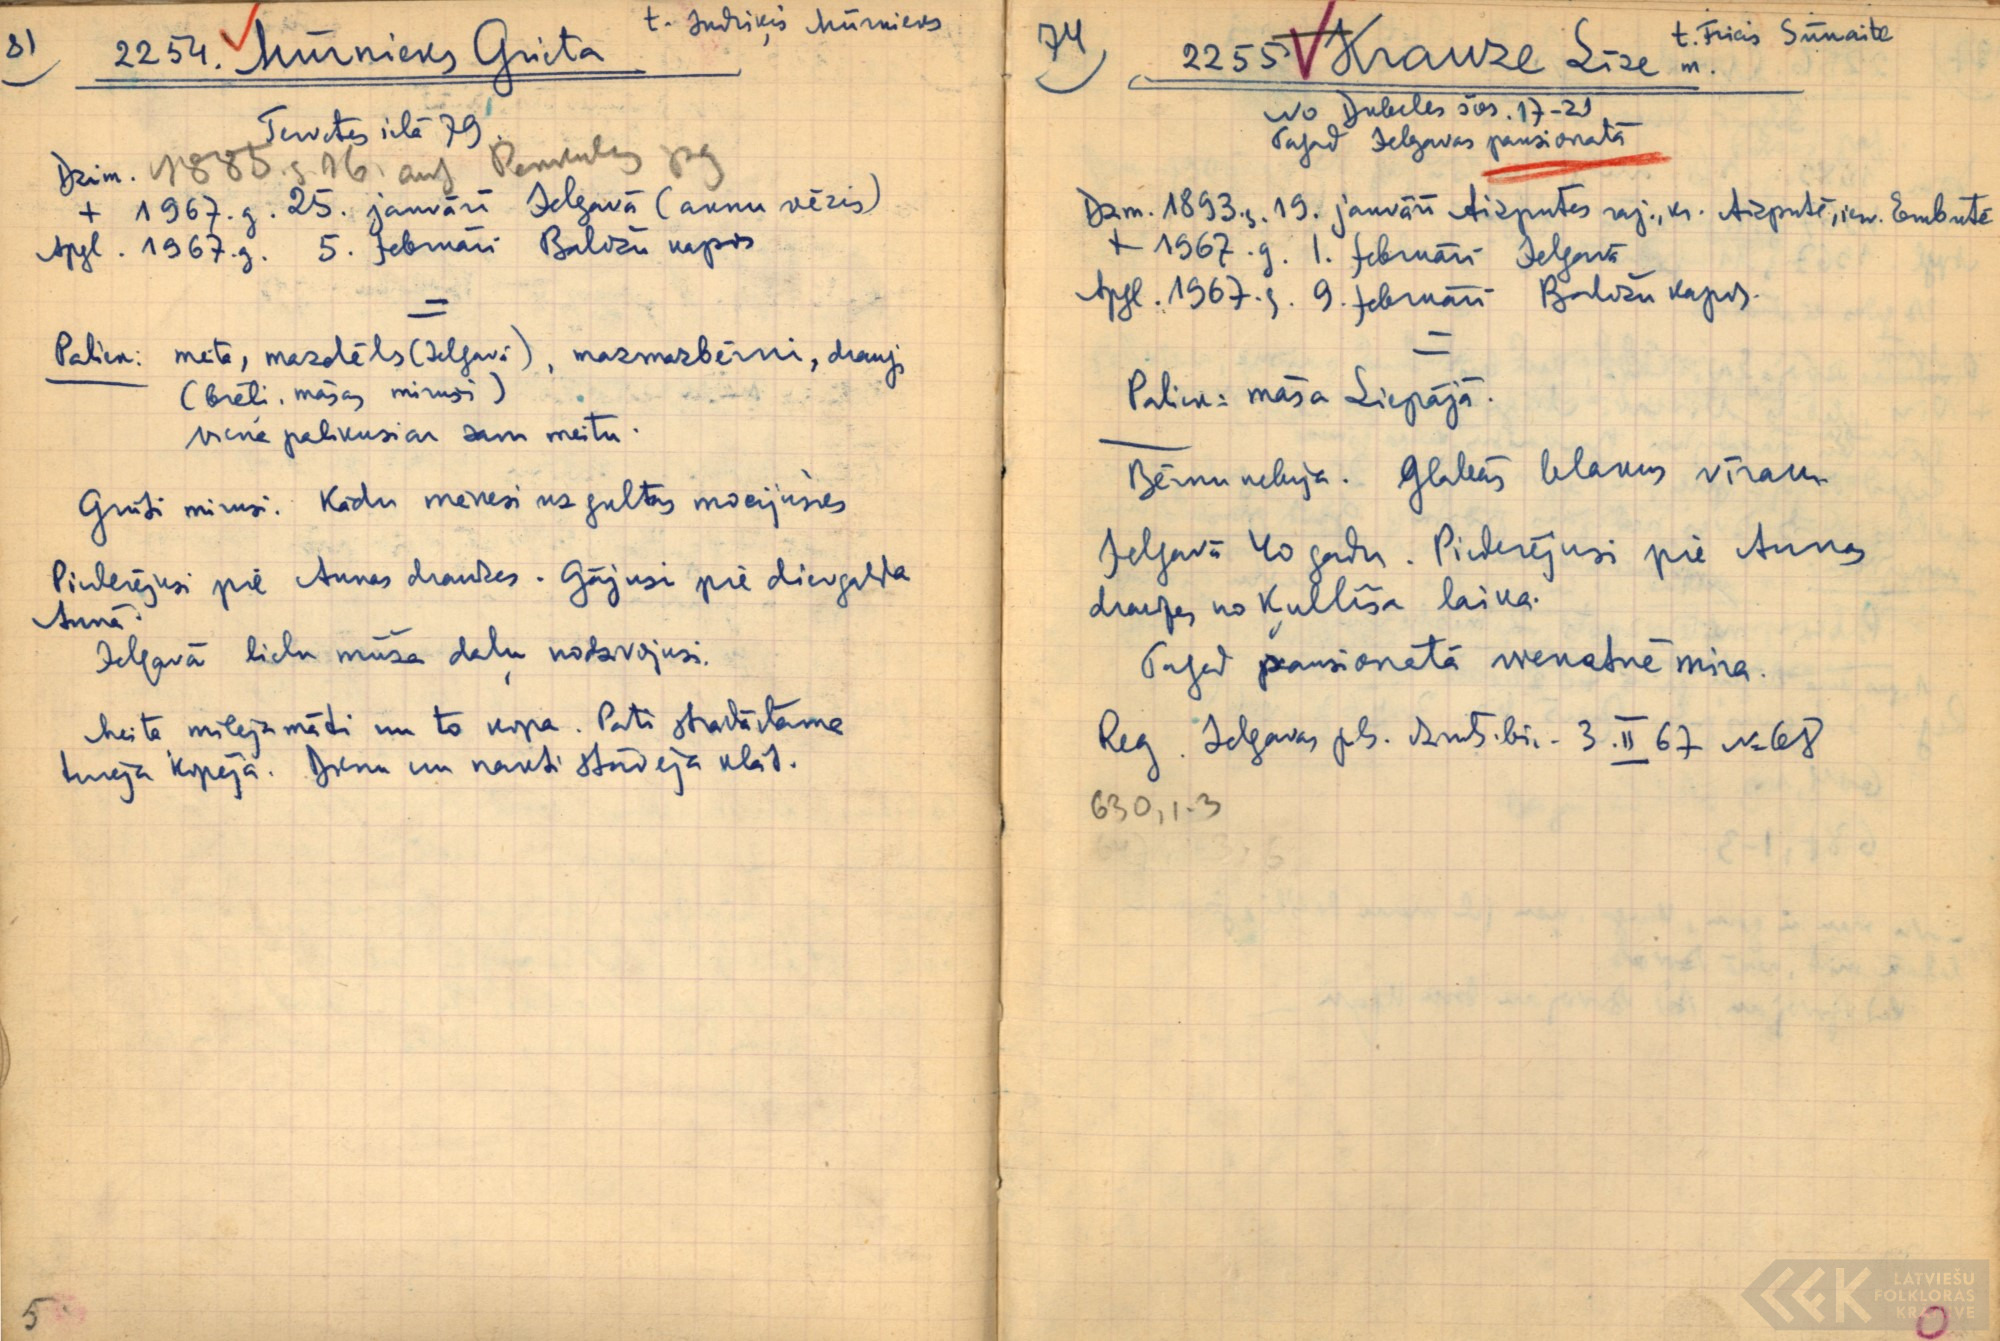 81
2254. Mūrnieks Grieta
t. Indriķis Mūrnieks
Tervetes ielā 79.
Dzim. 1885.g. 16. aug Penkules pag
+ 1967.g. 25. janvārī Jelgavā (aknu vēzis)
Apgl. 1967.g. 5. februārī Baložu kapos
=
Paliek: meita, mazdēls (Jelgavā), mazmazbērni, draugi
(brāļi, māsas mirusi)
viena palikusi ar savu meitu.
Grūti mirusi. Kādu mēnesi uz gultas mocījusies
Piederējusi pie Annas draudzes. Gājusi pie dievgalda
Annā.
Jelgavā lielu mūža daļu nodzvojusi.
Meita mīlēja māti un to kopa. Pati strādādama
turēja kopēja. Dienu un nakti stāvēja klāt.
5
74
2255 Krauze Līze
t. Fricis Sūnaite
m.
No Dobeles šos. 17-21
Tagad Jelgavas pansionatā
Dzim. 1893.g. 19. janvārī Aizputes raj., kr. Aizputē, ien. Embutē
+ 1967.g. 1. februārī Jelgavā
Apgl. 1967.g. 9. februārī Baložu kapos.
=
Paliek: māsa Liepājā.
Bērnu nebija. Glabās blakus vīram
Jelgavā 40 gadu. Piederējusi pie Annas
draudzes no Kullīša laika.
Tagad pansionatā vienatnē mira.
Reg. Jelgavas pils. dzimts. bir. 3.II 67 № 68
630, 1-3
0
LATVIEŠU
FOLKLORAS
KRĀTUVE